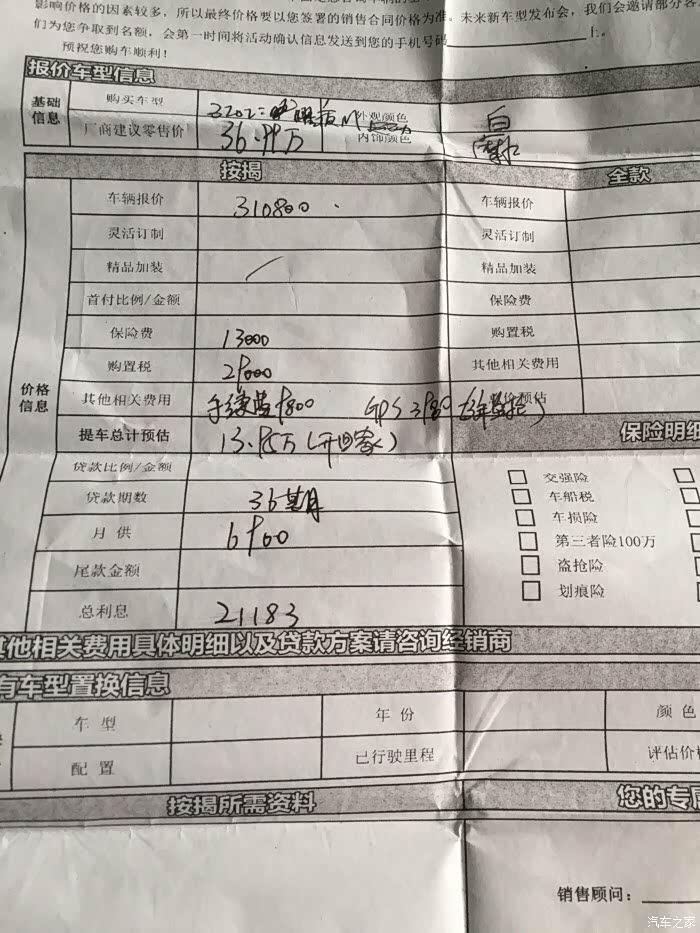 影响价格的因素较多，所以最终价格要以您签署的销售合同价格为准。未来新车型发布会，我们会邀请部分客
们为您争取到名额，会第一时间将活动确认信息发送到您的手机号码 上。
预祝您购车顺利！
报价车型信息
基础信息 购买车型 外观颜色 白
厂商建议零售价 36.99万 内饰颜色
按揭 全款
价格信息
车辆报价 310800 车辆报价
灵活订制 灵活订制
精品加装 精品加装
首付比例/金额 保险费
保险费 13000 购置税
购置税 29000 其他相关费用
其他相关费用 手续费9800 GPS 3980
提车总计预估 13.95万(开回家) 保险明细
贷款比例/金额 交强险
贷款期数 36期 车船税
月供 6900 车损险
第三者险100万
尾款金额 盗抢险
总利息 21183 划痕险
其他相关费用具体明细以及贷款方案请咨询经销商
有车型置换信息
车型 年份 颜色
配置 已行驶里程 评估价格
按揭所需资料 您的专属
销售顾问：
汽车之家